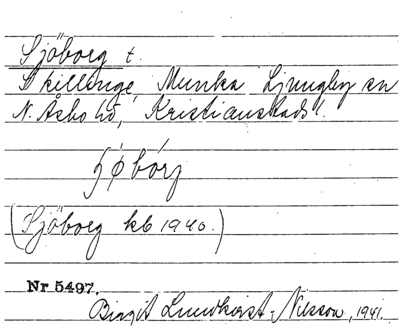 Sjöborg t.
Skillinge, Munka Ljungby sn
N. Åsbo hd, Kristianstads l.
ʃǿbórj
(Sjöborg kb 1940.)
Nr 5497.
Birgit Lundkvist-Nilsson, 1941.